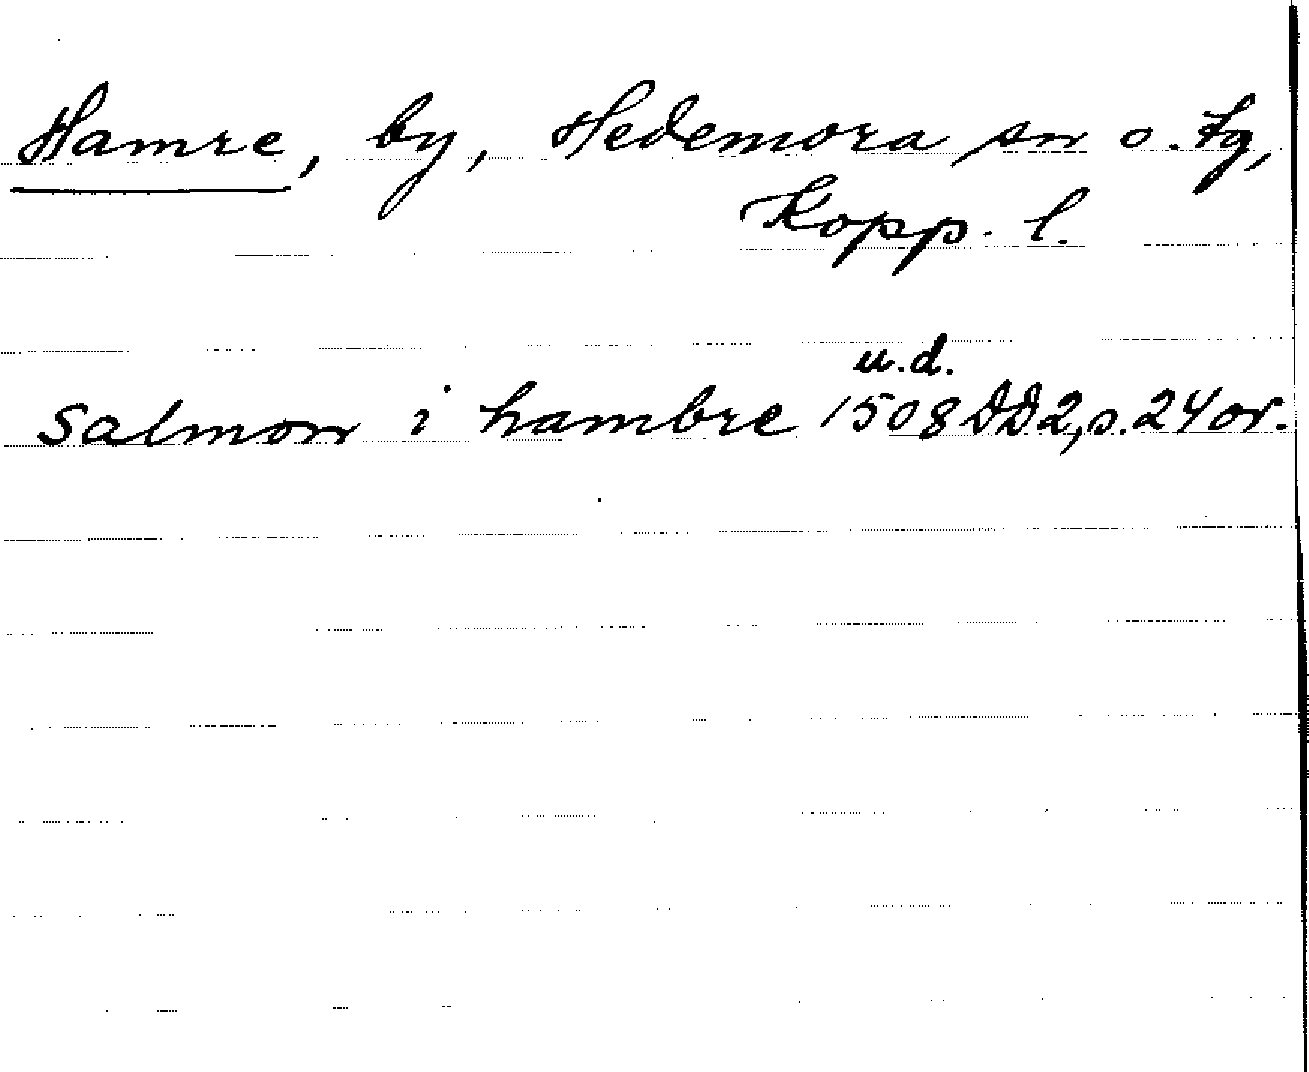 Hamre, by, Hedemora sn o. tg,
Kopp. l.
u.d.
Salmon i hambre 1508 DD2, s. 24 or.